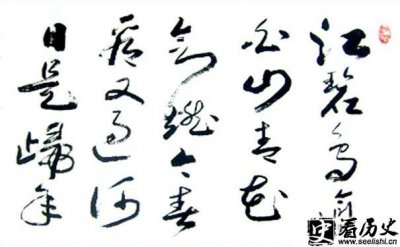 江碧鸟逾
白山青花
欲燃今春
看又过何
日是歸年
看历史
www.seelishi.cn